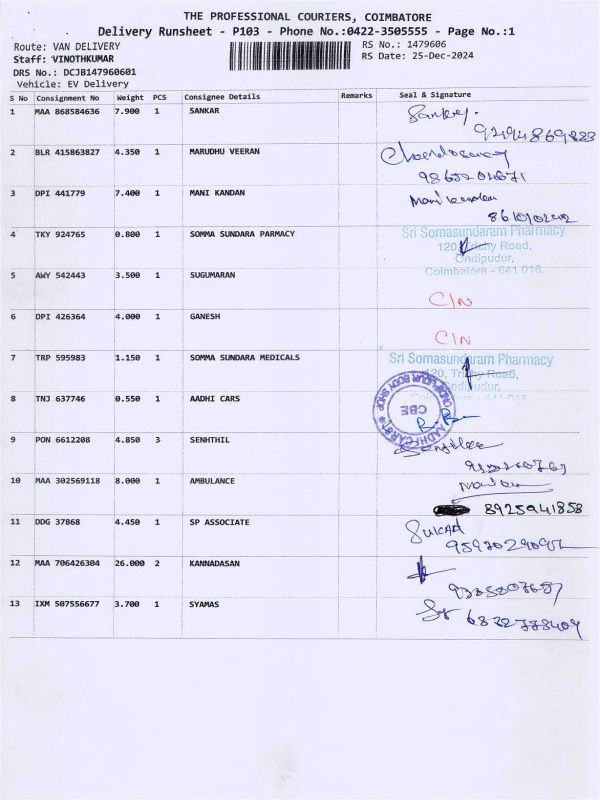 THE PROFESSIONAL COURIERS, COIMBATORE
Delivery Runsheet - P103 - Phone No.:0422-3505555 - Page No.:1
Route: VAN DELIVERY
RS No.: 1479606
Staff: VINOTHKUMAR
RS Date: 25-Dec-2024
DRS No.: DCJB147960601
Vehicle: EV Delivery
S No Consignment No Weight PCS Consignee Details Remarks Seal & Signature
1 MAA 868584636 7.900 1 SANKAR
2 BLR 415863827 4.350 1 MARUDHU VEERAN
3 DPI 441779 7.400 1 MANI KANDAN
4 TKY 924765 0.800 1 SOMMA SUNDARA PARMACY
Sri Somasundaram Pharmacy
120, Trichy Road,
Ondipudur,
Coimbatore - 641 016.
5 AWY 542443 3.500 1 SUGUMARAN
C/N
6 DPI 426364 4.000 1 GANESH
C/N
7 TRP 595983 1.150 1 SOMMA SUNDARA MEDICALS
Sri Somasundaram Pharmacy
120, Trichy Road,
Ondipudur,
Coimbatore - 641 016.
8 TNJ 637746 0.550 1 AADHI CARS
CBE
9 PON 6612208 4.850 3 SENHTHIL
10 MAA 302569118 8.000 1 AMBULANCE
8925941858
11 DDG 37868 4.450 1 SP ASSOCIATE
12 MAA 706426304 26.000 2 KANNADASAN
13 IXM 507556677 3.700 1 SYAMAS